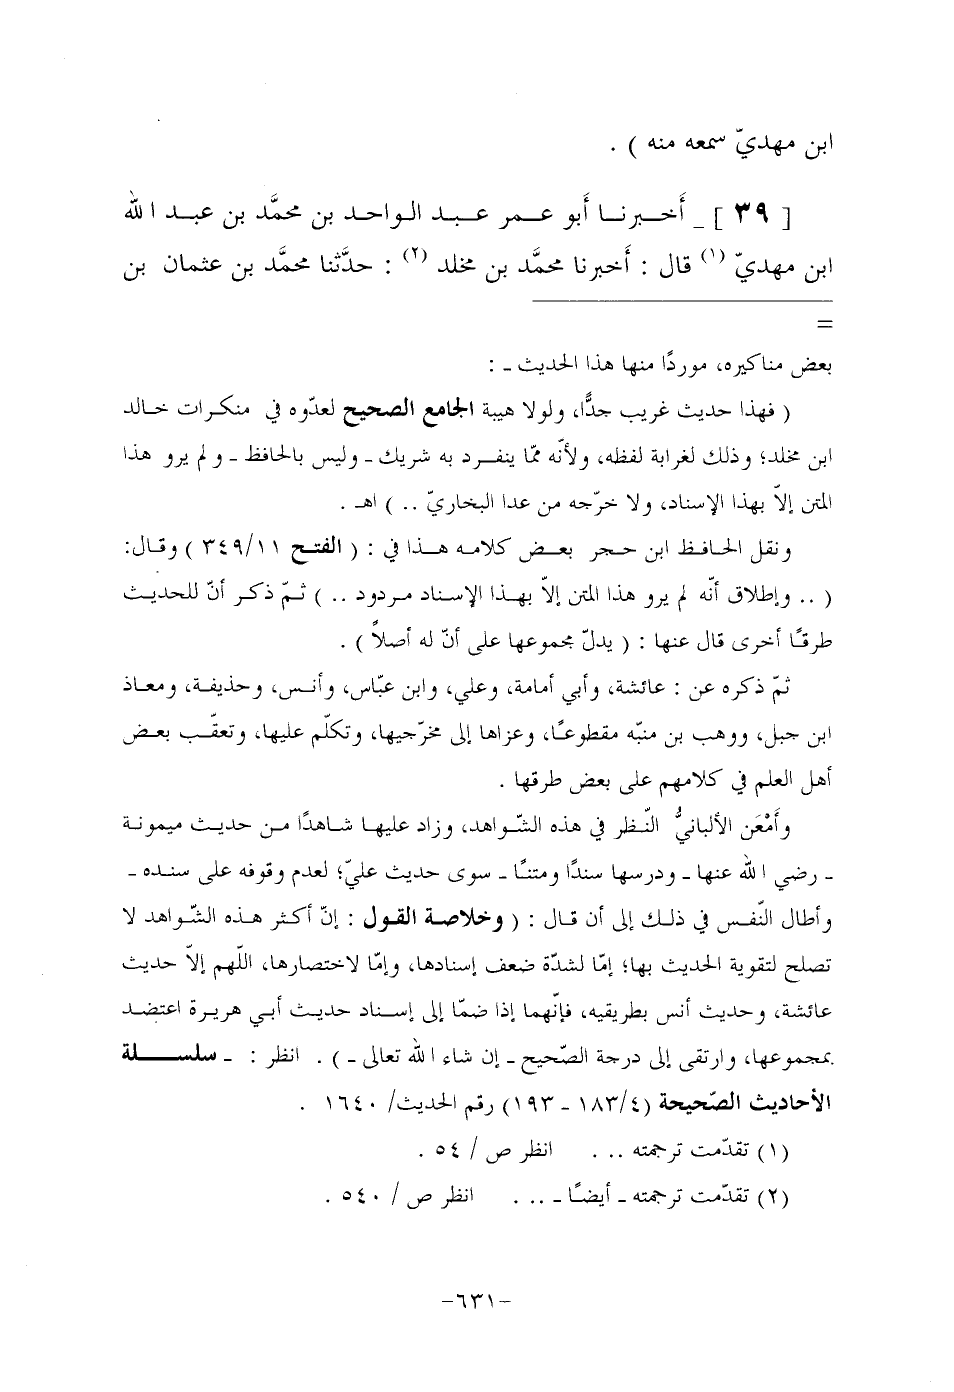 ابن مهديّ سمعه منه ) .
[ ٣٩ ] _ أَخـبرنـا أَبو عـمر عـبد الـواحـد بن محمَّد بن عبـد الله
ابن مهديّ (١) قال : أَخبرنا محمَّد بن مخلد (٢) : حدَّثنا محمَّد بن عثمان بن
=
بعض مناكيره، موردًا منها هذا الحديث ـ :
( فهذا حديث غريب جدًّا، ولولا هيبة الجامع الصحيح لعدّوه في منكرات خـالد
ابن مخلد؛ وذلك لغرابة لفظه، ولأنّه ممّا ينفـرد به شريك ـ وليس بالحافظ ـ ولم يرو هذا
المتن إلاّ بهذا الإسناد، ولا خرّجه من عدا البخاريّ .. ) اهـ .
ونقل الحـافـظ ابن حـجر بعـض كلامـه هـذا في : ( الفتح ١١/ ٣٤٩ ) وقـال:
( .. وإطلاق أنّه لم يرو هذا المتن إلاّ بهـذا الإسـناد مـردود .. ) ثـمّ ذكـر أنّ للحديـث
طرقًا أخرى قال عنها : ( يدلّ مجموعها على أنّ له أصلاً ) .
ثمّ ذكره عن : عائشة، وأبي أمامة، وعلي، وابن عبّاس، وأنـس، وحذيفـة، ومعـاذ
ابن جبل، ووهب بن منبّه مقطوعـًا، وعزاها إلى مخرّجيها، وتكلّم عليها، وتعقّـب بعـض
أهل العلم في كلامهم على بعض طرقها .
وأَمْعَن الألبانيُّ النّظر في هذه الشّـواهد، وزاد عليهـا شـاهدًا مـن حديـث ميمونـة
ـ رضي الله عنها ـ ودرسها سندًا ومتنـًا ـ سوى حديث عليّ؛ لعدم وقوفه على سنده ـ
وأطال النَّفس في ذلـك إلى أن قـال : ( وخلاصة القول : إنّ أكثر هـذه الشّـواهد لا
تصلح لتقوية الحديث بها؛ إمّا لشدّة ضعف إسنادها، وإمّا لاختصارها، اللّهم إلاّ حديث
عائشة، وحديث أنس بطريقيه، فإنّهما إذا ضمّا إلى إسـناد حديـث أبـي هريـرة اعتضـد
بمجموعها، وارتقى إلى درجة الصّحيح ـ إن شاء الله تعالى ـ ) . انظر : ـ سلسـلـة
الأحاديث الصّحيحة (٤/ ١٨٣ ـ ١٩٣) رقم الحديث/ ١٦٤٠ .
(١) تقدّمت ترجمته ... انظر ص / ٥٤ .
(٢) تقدّمت ترجمته ـ أيضًـا ـ ... انظر ص / ٥٤٠ .
-٦٣١-